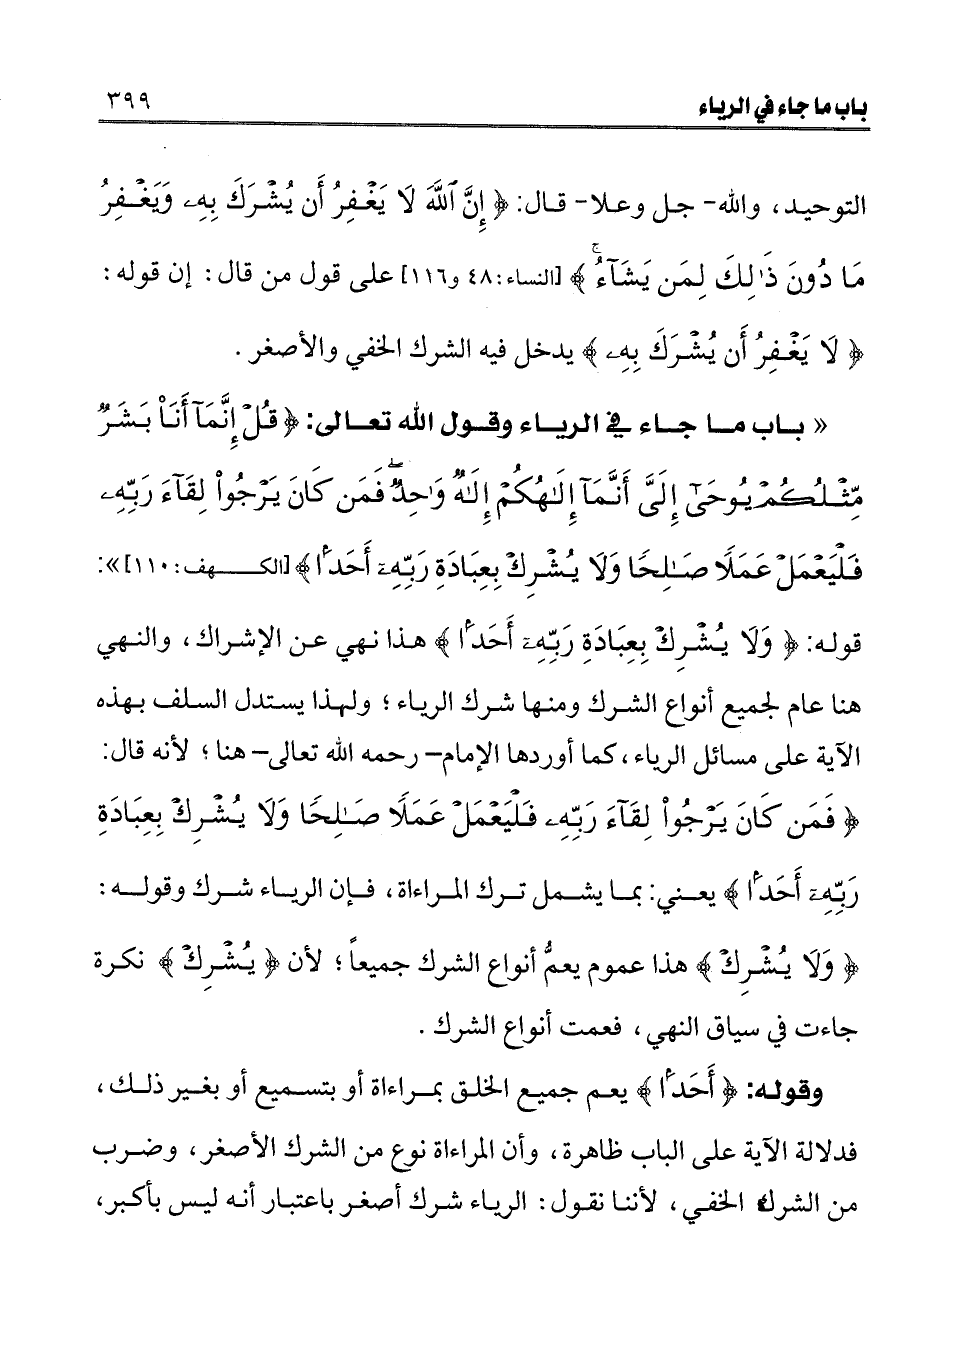 باب ما جاء في الرياء ٣٩٩
التوحيد، والله- جل وعلا- قال: ﴿ إِنَّ ٱللَّهَ لَا يَغْفِرُ أَن يُشْرَكَ بِهِۦ وَيَغْفِرُ
مَا دُونَ ذَٰلِكَ لِمَن يَشَآءُۚ ﴾ [النساء: ٤٨ و١١٦] على قول من قال: إن قوله:
﴿ لَا يَغْفِرُ أَن يُشْرَكَ بِهِۦ ﴾ يدخل فيه الشرك الخفي والأصغر.
« باب ما جاء في الرياء وقول الله تعالى: ﴿ قُلْ إِنَّمَآ أَنَا۠ بَشَرٌ
مِّثْلُكُمْ يُوحَىٰٓ إِلَىَّ أَنَّمَآ إِلَٰهُكُمْ إِلَٰهٌ وَٰحِدٌۖ فَمَن كَانَ يَرْجُوا۟ لِقَآءَ رَبِّهِۦ
فَلْيَعْمَلْ عَمَلًا صَٰلِحًا وَلَا يُشْرِكْ بِعِبَادَةِ رَبِّهِۦٓ أَحَدًۢا ﴾ [الكهف: ١١٠] »:
قوله: ﴿ وَلَا يُشْرِكْ بِعِبَادَةِ رَبِّهِۦٓ أَحَدًۢا ﴾ هذا نهي عن الإشراك، والنهي
هنا عام لجميع أنواع الشرك ومنها شرك الرياء؛ ولهذا يستدل السلف بهذه
الآية على مسائل الرياء، كما أوردها الإمام- رحمه الله تعالى- هنا؛ لأنه قال:
﴿ فَمَن كَانَ يَرْجُوا۟ لِقَآءَ رَبِّهِۦ فَلْيَعْمَلْ عَمَلًا صَٰلِحًا وَلَا يُشْرِكْ بِعِبَادَةِ
رَبِّهِۦٓ أَحَدًۢا ﴾ يعني: بما يشمل ترك المراءاة، فإن الرياء شرك وقوله:
﴿ وَلَا يُشْرِكْ ﴾ هذا عموم يعمُّ أنواع الشرك جميعاً؛ لأن ﴿ يُشْرِكْ ﴾ نكرة
جاءت في سياق النهي، فعمت أنواع الشرك.
وقوله: ﴿ أَحَدًۢا ﴾ يعم جميع الخلق بمراءاة أو بتسميع أو بغير ذلك،
فدلالة الآية على الباب ظاهرة، وأن المراءاة نوع من الشرك الأصغر، وضرب
من الشرك الخفي، لأننا نقول: الرياء شرك أصغر باعتبار أنه ليس بأكبر،